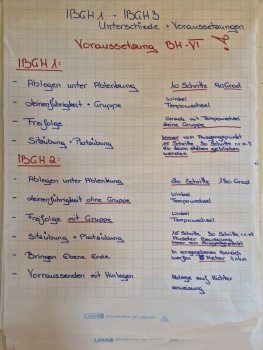 IBGH 1 - IBGH 3
Unterschiede + Voraussetzungen
Voraussetzung BH-VT
IBGH 1:
- Ablegen unter Ablenkung 10 Schritte 90 Grad
- Leinenführigkeit + Gruppe Winkel
Tempowechsel
- Freifolge Gerade mit Tempowechsel
ohne Gruppe
- Sitzübung + Platzübung immer von Ausgangspunkt
15 Schritte 30 Schritte
stehen geblieben
werden
IBGH 2:
- Ablegen unter Ablenkung 20 Schritte 180 Grad
- Leinenführigkeit ohne Gruppe Winkel
Tempowechsel
- Freifolge mit Gruppe Winkel
Tempowechsel
- Sitzübung + Platzübung 15 Schritte 30 Schritte
Bewegung
- Bringen Ebene Erde Bereich
werfen Meter
- Vorraussenden mit Hinlegen Ablage auf Richter
anweisung